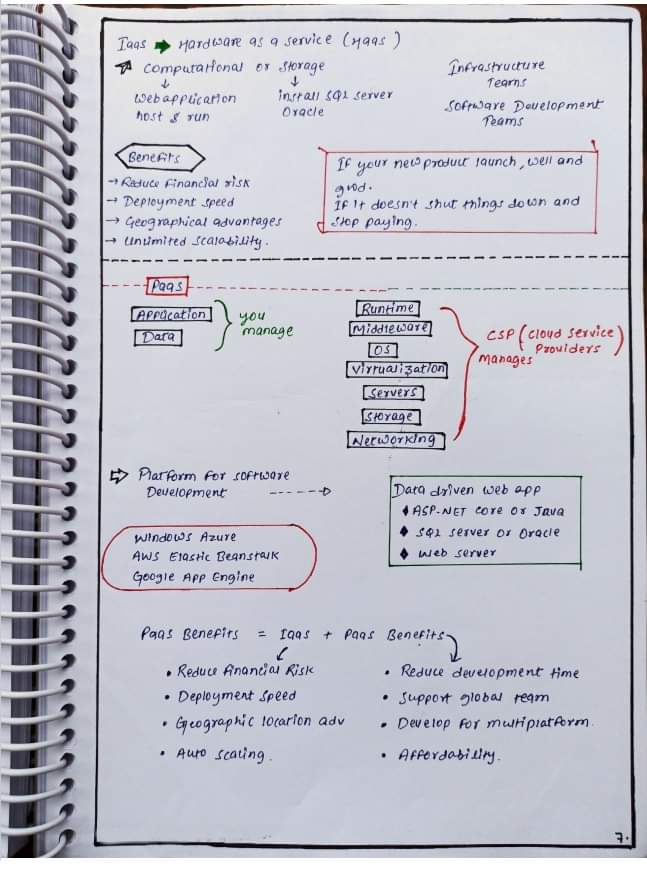 Iaas → Hardware as a service (Haas)
computational or storage
↓ ↓
Web application install SQL server
host & run Oracle
Infrastructure
Teams
Software Development
Teams
Benefits
→ Reduce Financial risk
→ Deployment speed
→ Geographical advantages
→ Unlimited scalability.
If your new product launch, well and
good.
If it doesn't shut things down and
stop paying.
Paas
Application
Data
you
manage
Runtime
Middleware
OS
Virtualization
Servers
Storage
Networking
CSP (Cloud Service
Providers)
manages
⇒ Platform for software
Development ----→
Data driven web app
♦ ASP.NET core or Java
♦ SQL server or Oracle
♦ Web server
Windows Azure
AWS Elastic Beanstalk
Google App Engine
Paas Benefits = Iaas + Paas Benefits
• Reduce Financial Risk
• Deployment speed
• Geographic location adv
• Auto scaling.
• Reduce development time
• Support global team
• Develop for multiplatform.
• Affordability.
7.